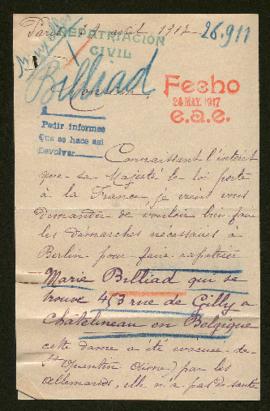 Paris 30 1917 26,911
REPATRIACIÓN
CIVIL
Billiad
Fecho
24 MAY. 1917
e.a.e.
Pedir informes
Que se hace así
Devolver
Connaissant l'intérêt
que sa Majesté le roi porte
à la France je viens vous
demander de vouloir bien faire
les démarches nécessaires à
Berlin pour faire rapatrier
Marie Billiad qui se
trouve 453 rue de Gilly à
Châtelineau en Belgique
cette dame a été évacuée de
St Quentin (Aisne) par les
allemands, elle n'a pas de santé